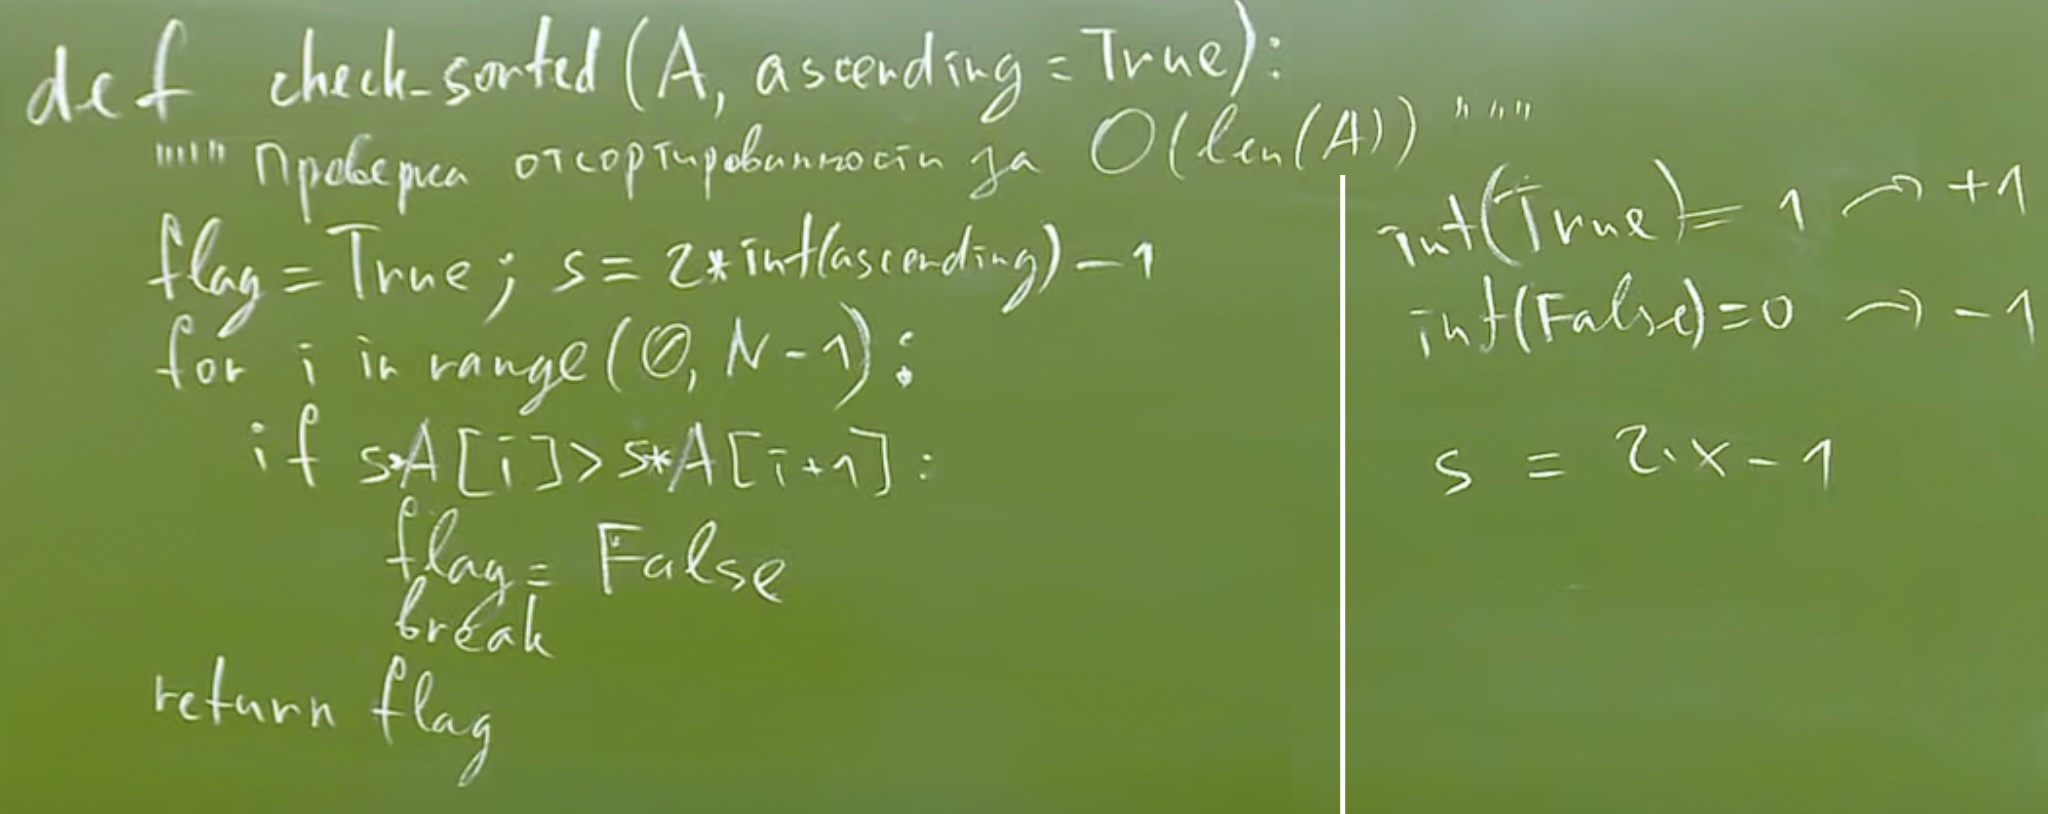 def check_sorted(A, ascending=True):
""" Проверка отсортированности за O(len(A)) """
flag = True; s = 2*int(ascending) - 1
for i in range(0, N-1):
if s*A[i] > s*A[i+1]:
flag = False
break
return flag
int(True) = 1 → +1
int(False) = 0 → -1
s = 2·x - 1